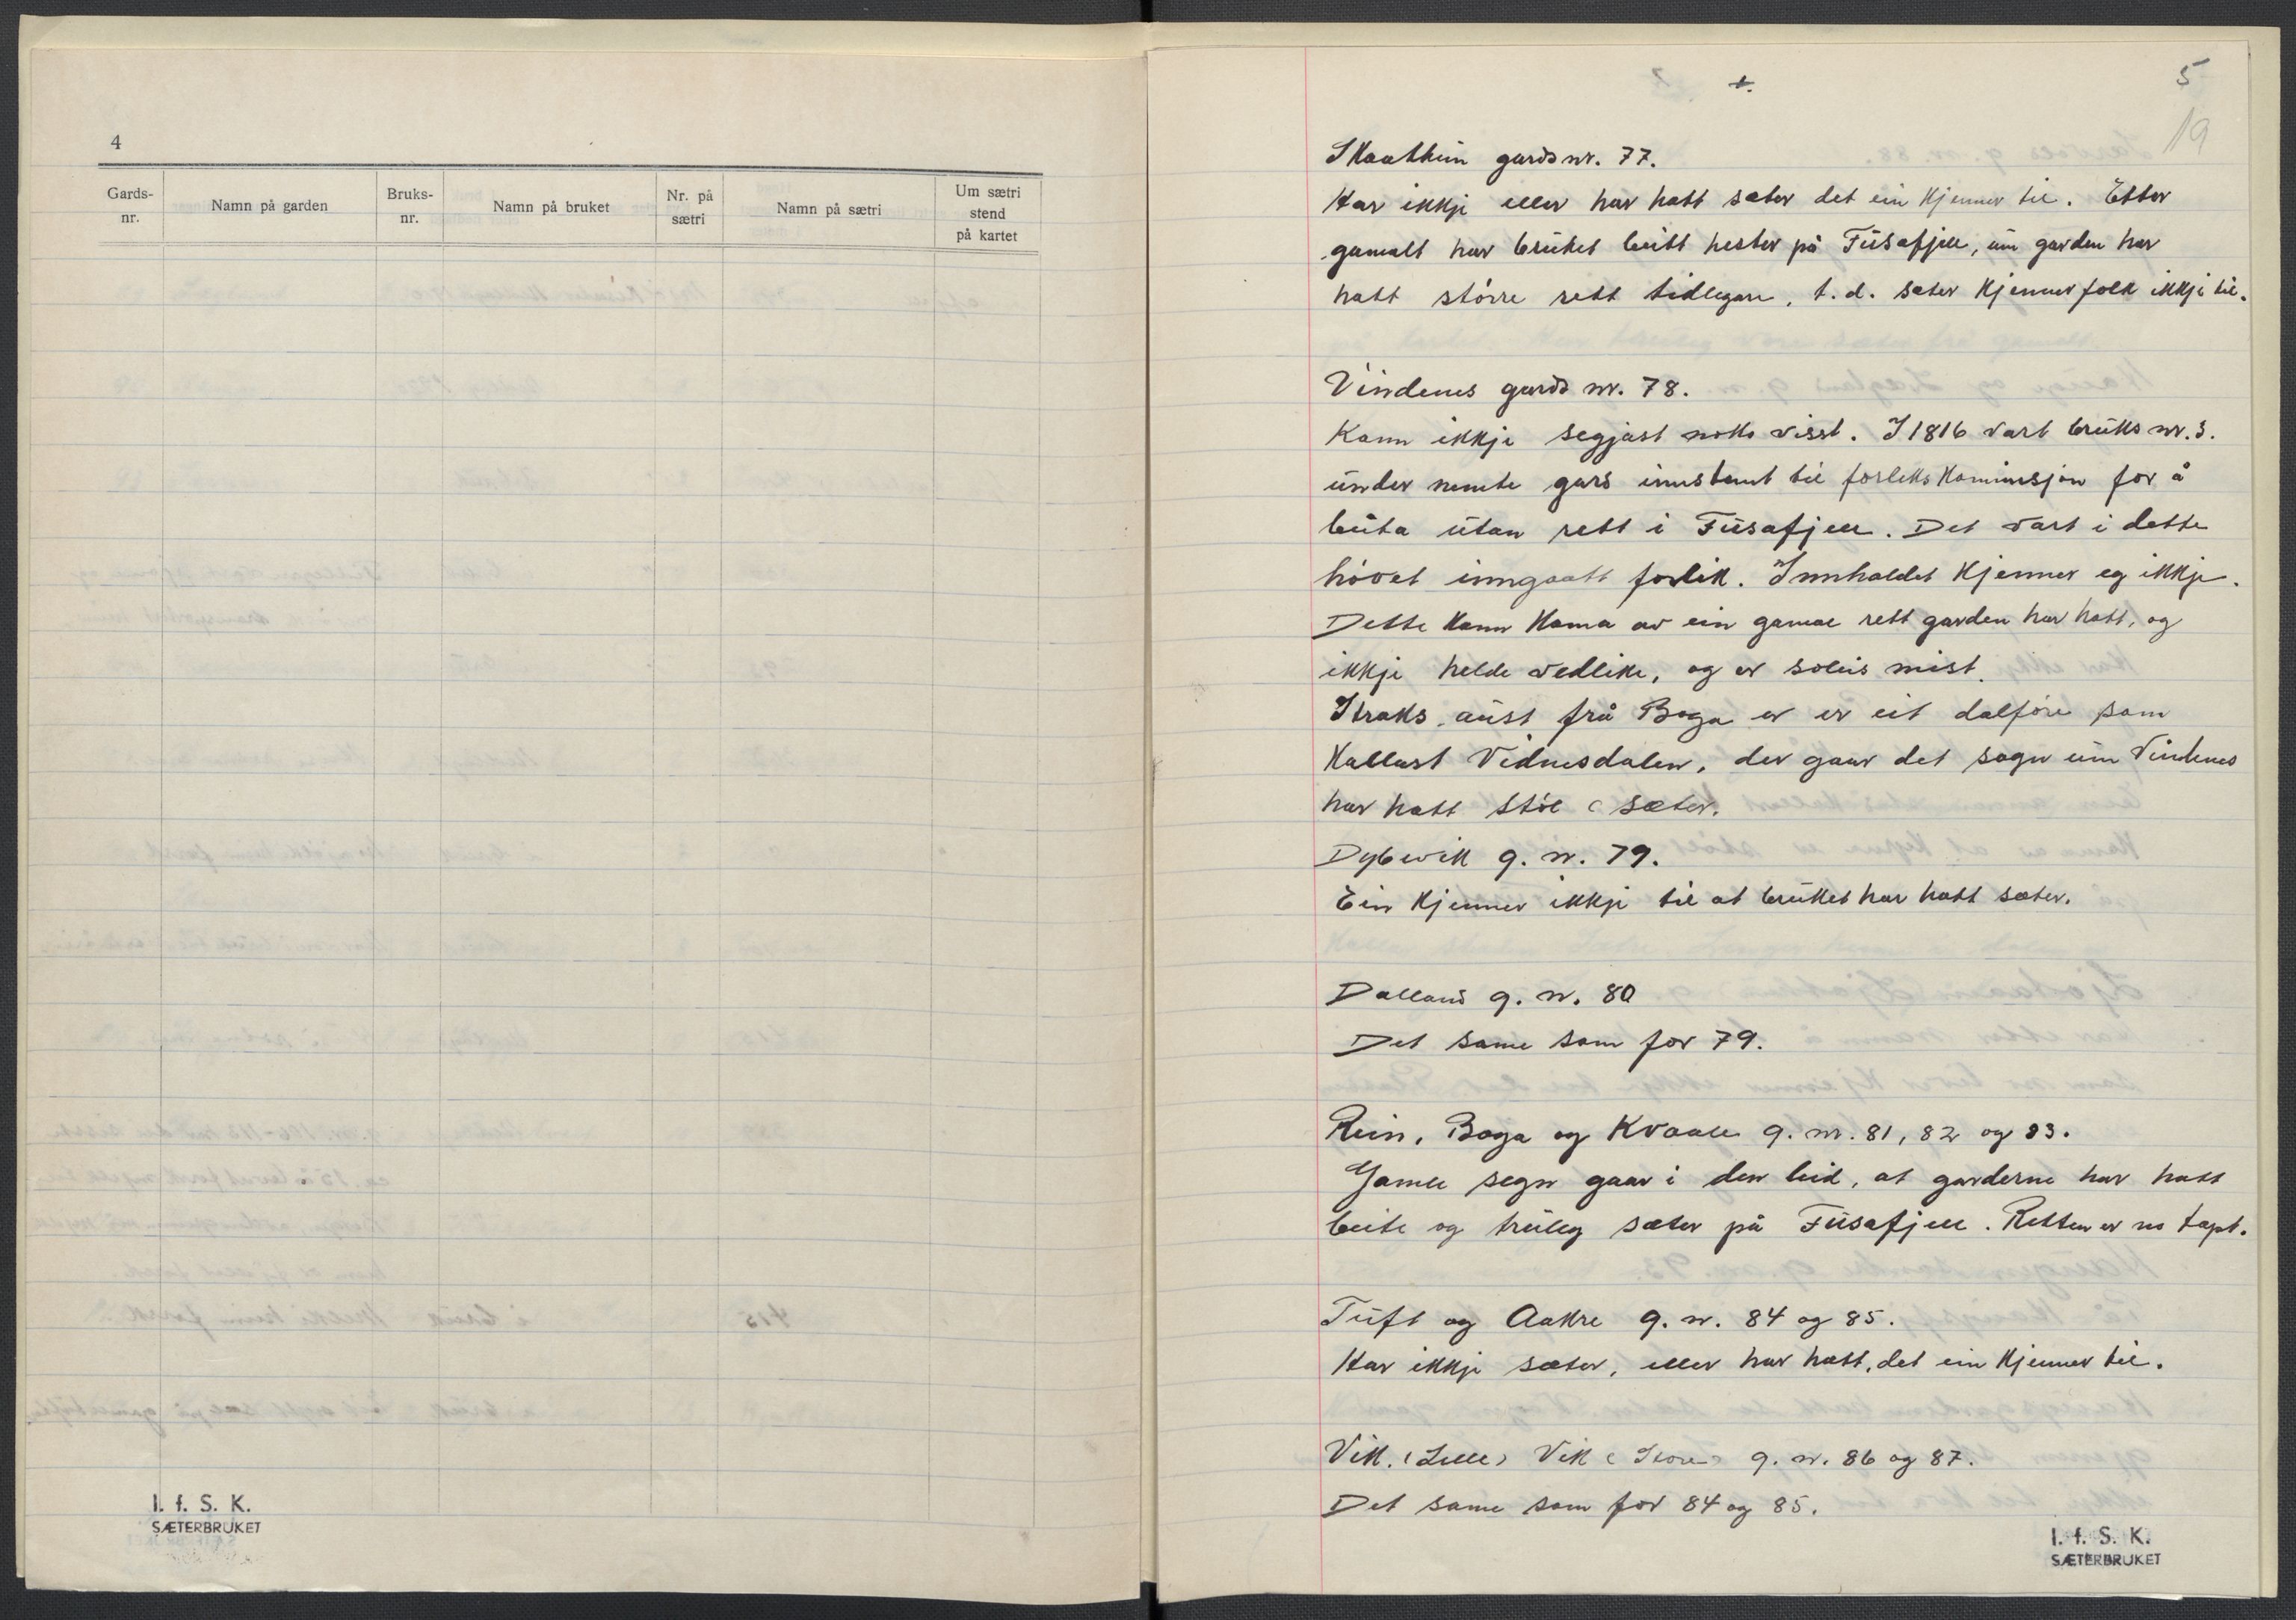 4
Gards-
nr.
Namn på garden
Bruks-
nr.
Namn på bruket
Nr. på
sætri
Namn på sætri
Um sætri
stend
på kartet
I. f. S. K.
SÆTERBRUKET
5
19
1.
Skaathun gards nr. 77.
Har ikkje eller har hatt sæter det ein kjenner til. Etter
gamalt har bruket beitt hester på Fusafjell, um garden har
hatt större rett tidlegare, t.d. sæter kjenner folk ikkje til.
Vindenes gards nr. 78.
Kann ikkje segjast noko visst. I 1816 vart bruks nr. 3.
under nemte gard innstemt til forlikskommisjon for å
beita utan rett i Fusafjell. Det vart i dette
hövet inngaatt forlik. Innhaldet kjenner eg ikkje.
Dette kann koma av ein gamal rett garden har hatt, og
ikkje helde vedlike, og er soleis mist.
Straks aust frå Boga er er eit dalföre som
kallast Vidnesdalen, der gaar det sogn um Vindenes
har hatt stöl c sæter.
Dybevik g. nr. 79.
Ein kjenner ikkje til at bruket har hatt sæter.
Dalland g. nr. 80
Det same som for 79.
Rein, Boga og Kvaale g. nr. 81, 82 og 83.
Gamle segn gaar i den leid, at garderne har hatt
beite og truleg sæter på Fusafjell. Retten er no tapt.
Tuft og Aakre g. nr. 84 og 85.
Har ikkje sæter, eller har hatt, det ein kjenner til.
Vik. (Lille) Vik (Store) g. nr. 86 og 87.
Det same som for 84 og 85.
I. f. S. K.
SÆTERBRUKET